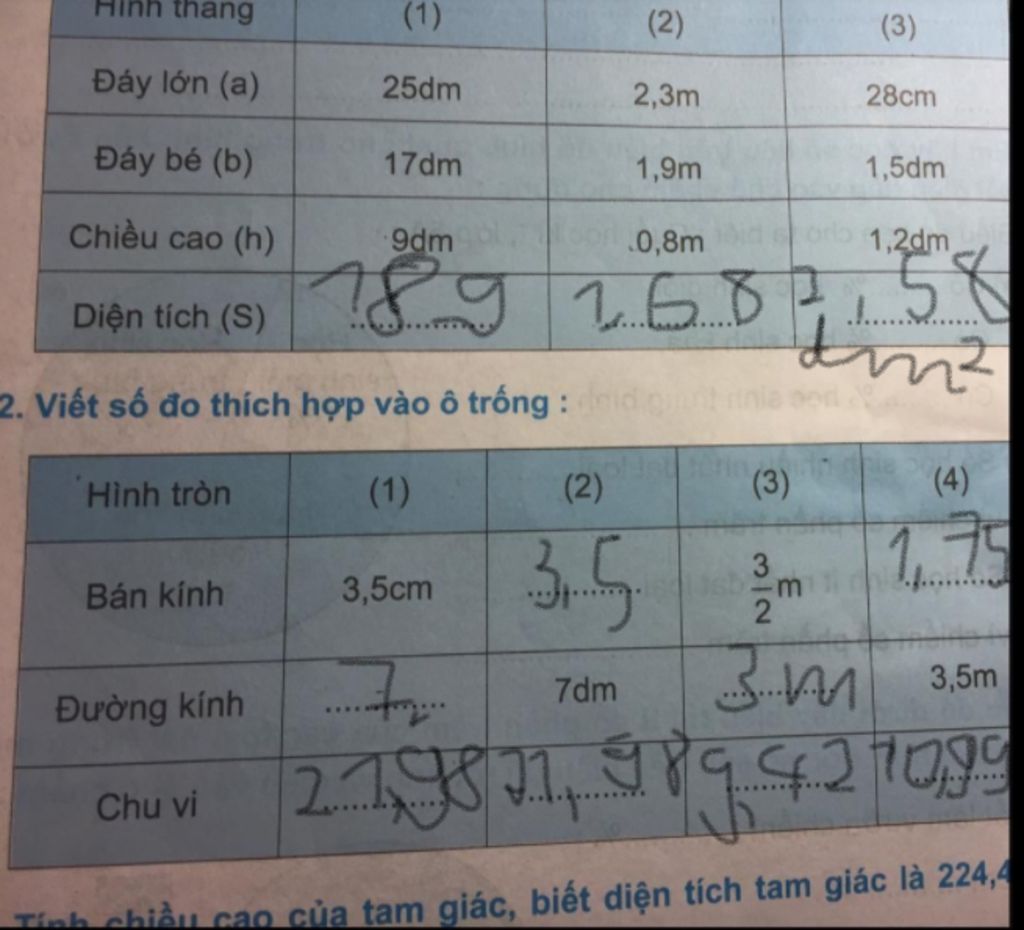 Hình thang (1) (2) (3)
Đáy lớn (a) 25dm 2,3m 28cm
Đáy bé (b) 17dm 1,9m 1,5dm
Chiều cao (h) 9dm 0,8m 1,2dm
Diện tích (S) 189 1,68 2,58
dm²
2. Viết số đo thích hợp vào ô trống :
Hình tròn (1) (2) (3) (4)
Bán kính 3,5cm 3,5 3/2 m 1,75
Đường kính 7 7dm 3m 3,5m
Chu vi 21,98 21,98 9,42 10,99
Tính chiều cao của tam giác, biết diện tích tam giác là 224,4